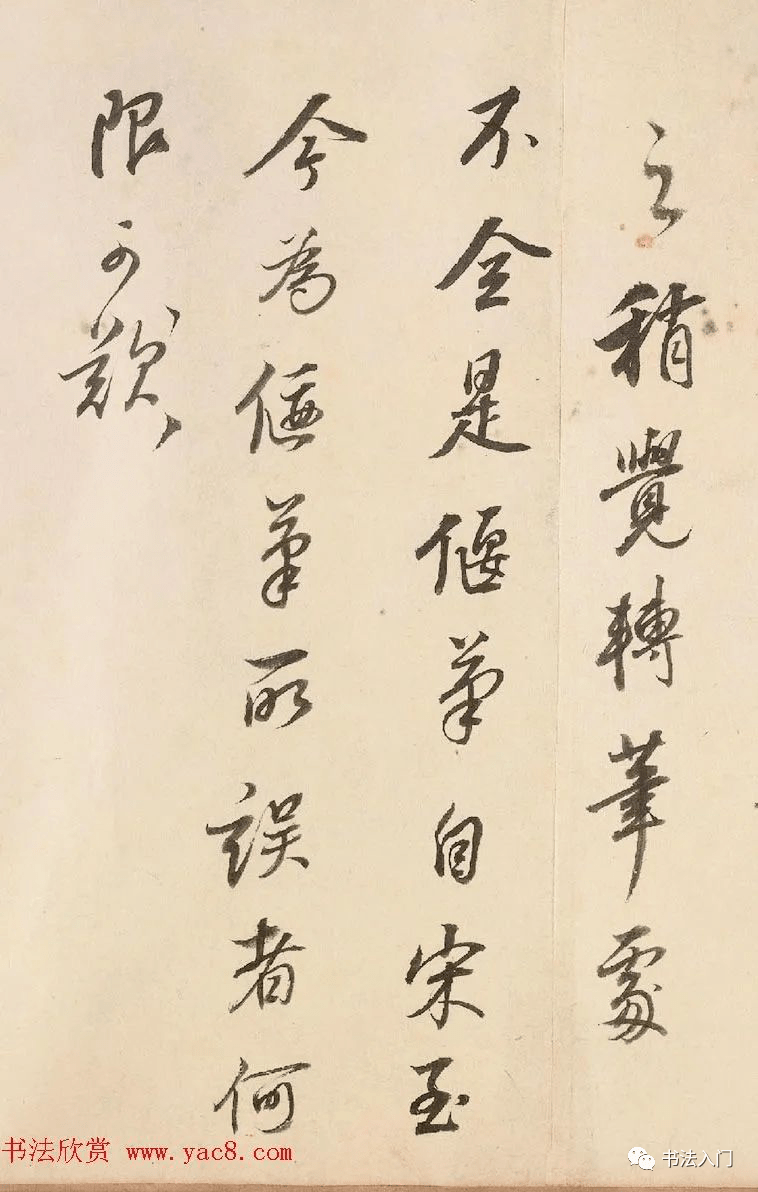 之稍覺轉筆處
不全是偃筆自宋至
今為偃筆所誤者何
限可歎
书法欣赏 www.yac8.com
书法入门